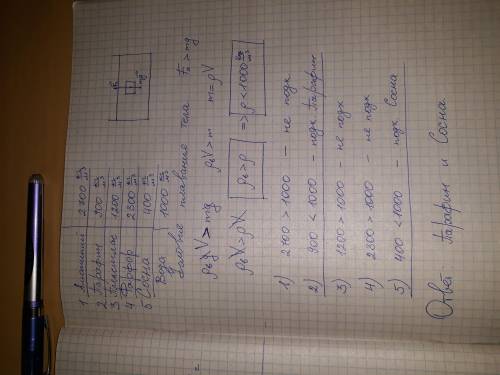 1 Алюминий 2700 кг/м³
2 Парафин 900 кг/м³
3 Плексиглас 1200 кг/м³
4 Фарфор 2300 кг/м³
5 Сосна 400 кг/м³
Вода 1000 кг/м³
Fₐ
mg
Условие плавание тела Fₐ > mg
ρв g V > mg ρвV > m m = ρV
ρв V > ρ V ρв > ρ => ρ < 1000 кг/м³
1) 2700 > 1000 – не подх
2) 900 < 1000 – подх Парафин
3) 1200 > 1000 – не подх
4) 2300 > 1000 – не подх
5) 400 < 1000 – подх Сосна
Ответ Парафин и Сосна